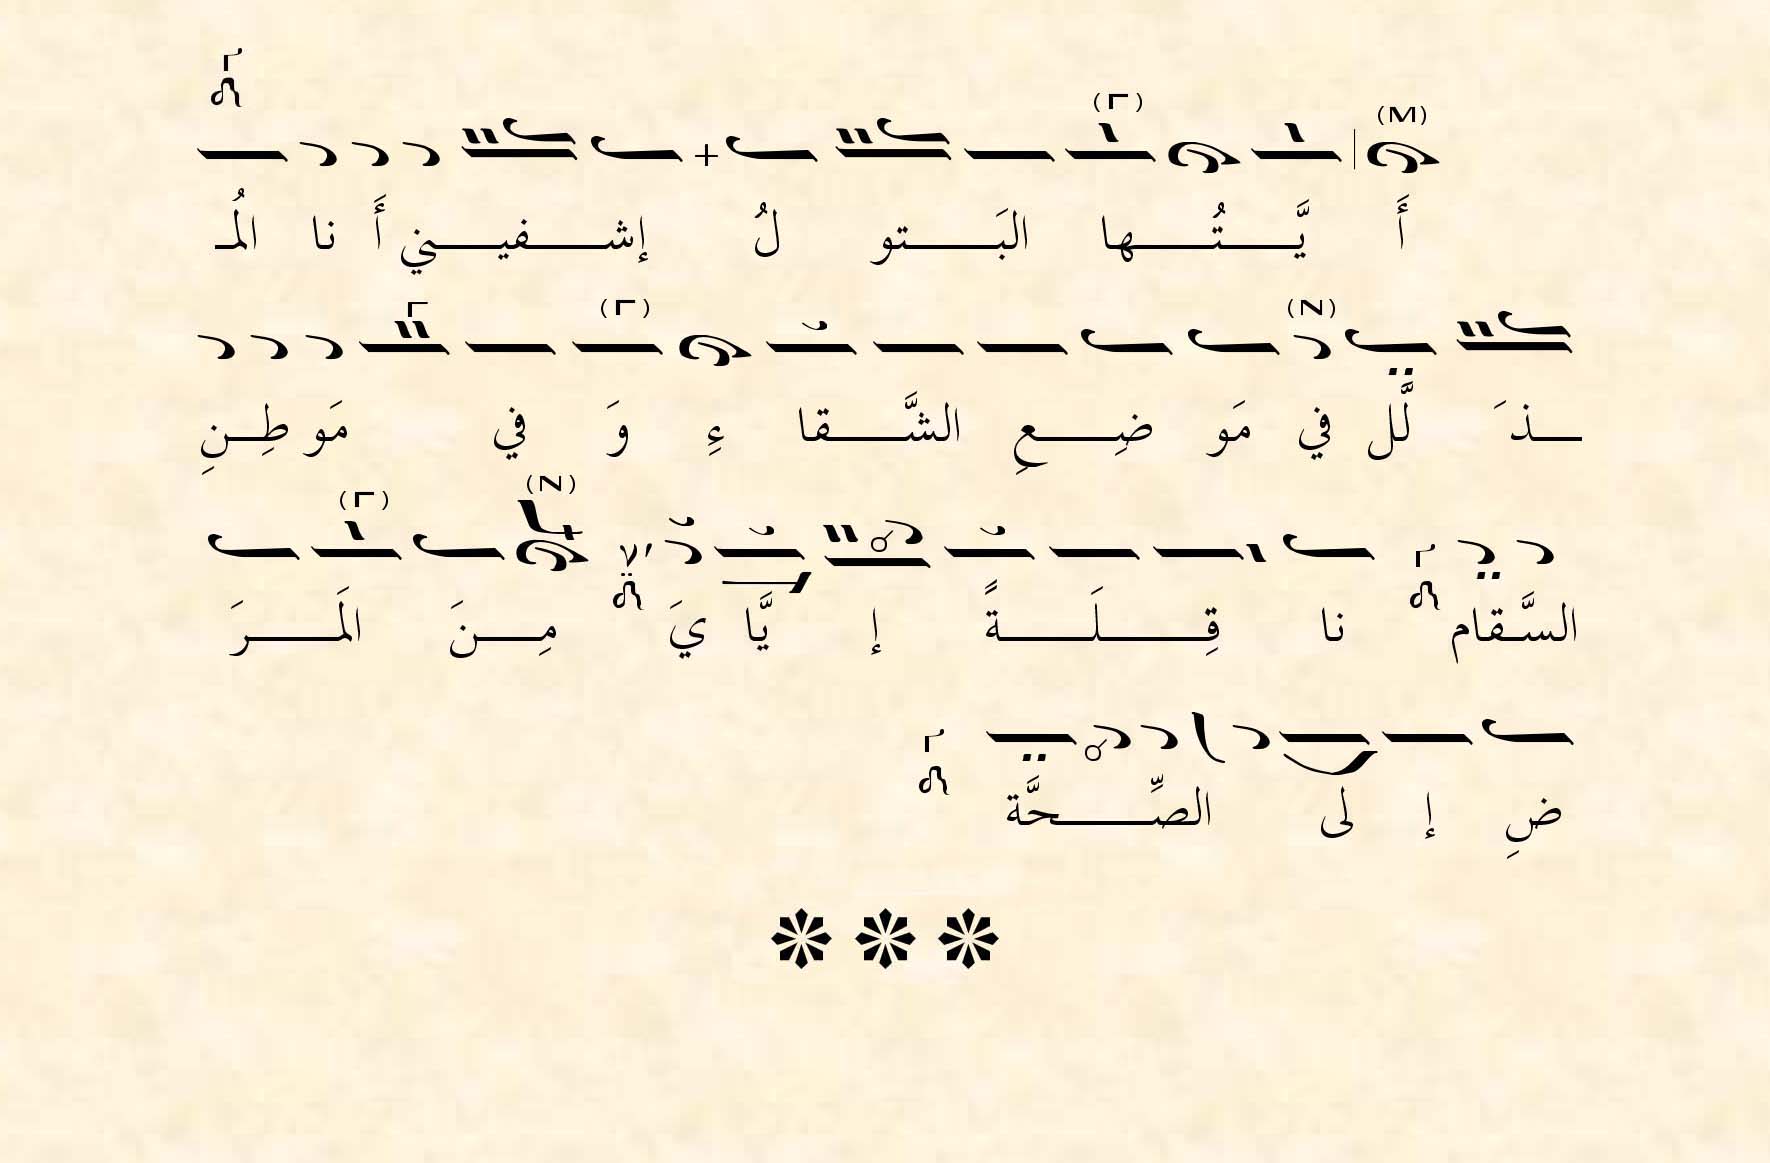 أَ يَّتُها البَتو لُ إشفيني أَ نا المُـ
ـذَ لَّل في مَو ضِعِ الشَّقا ءِ وَ في مَو طِنِ
السَّقام نا قِلَةً إ يَّا يَ مِنَ المَرَ
ضِ إ لى الصِّحَّة